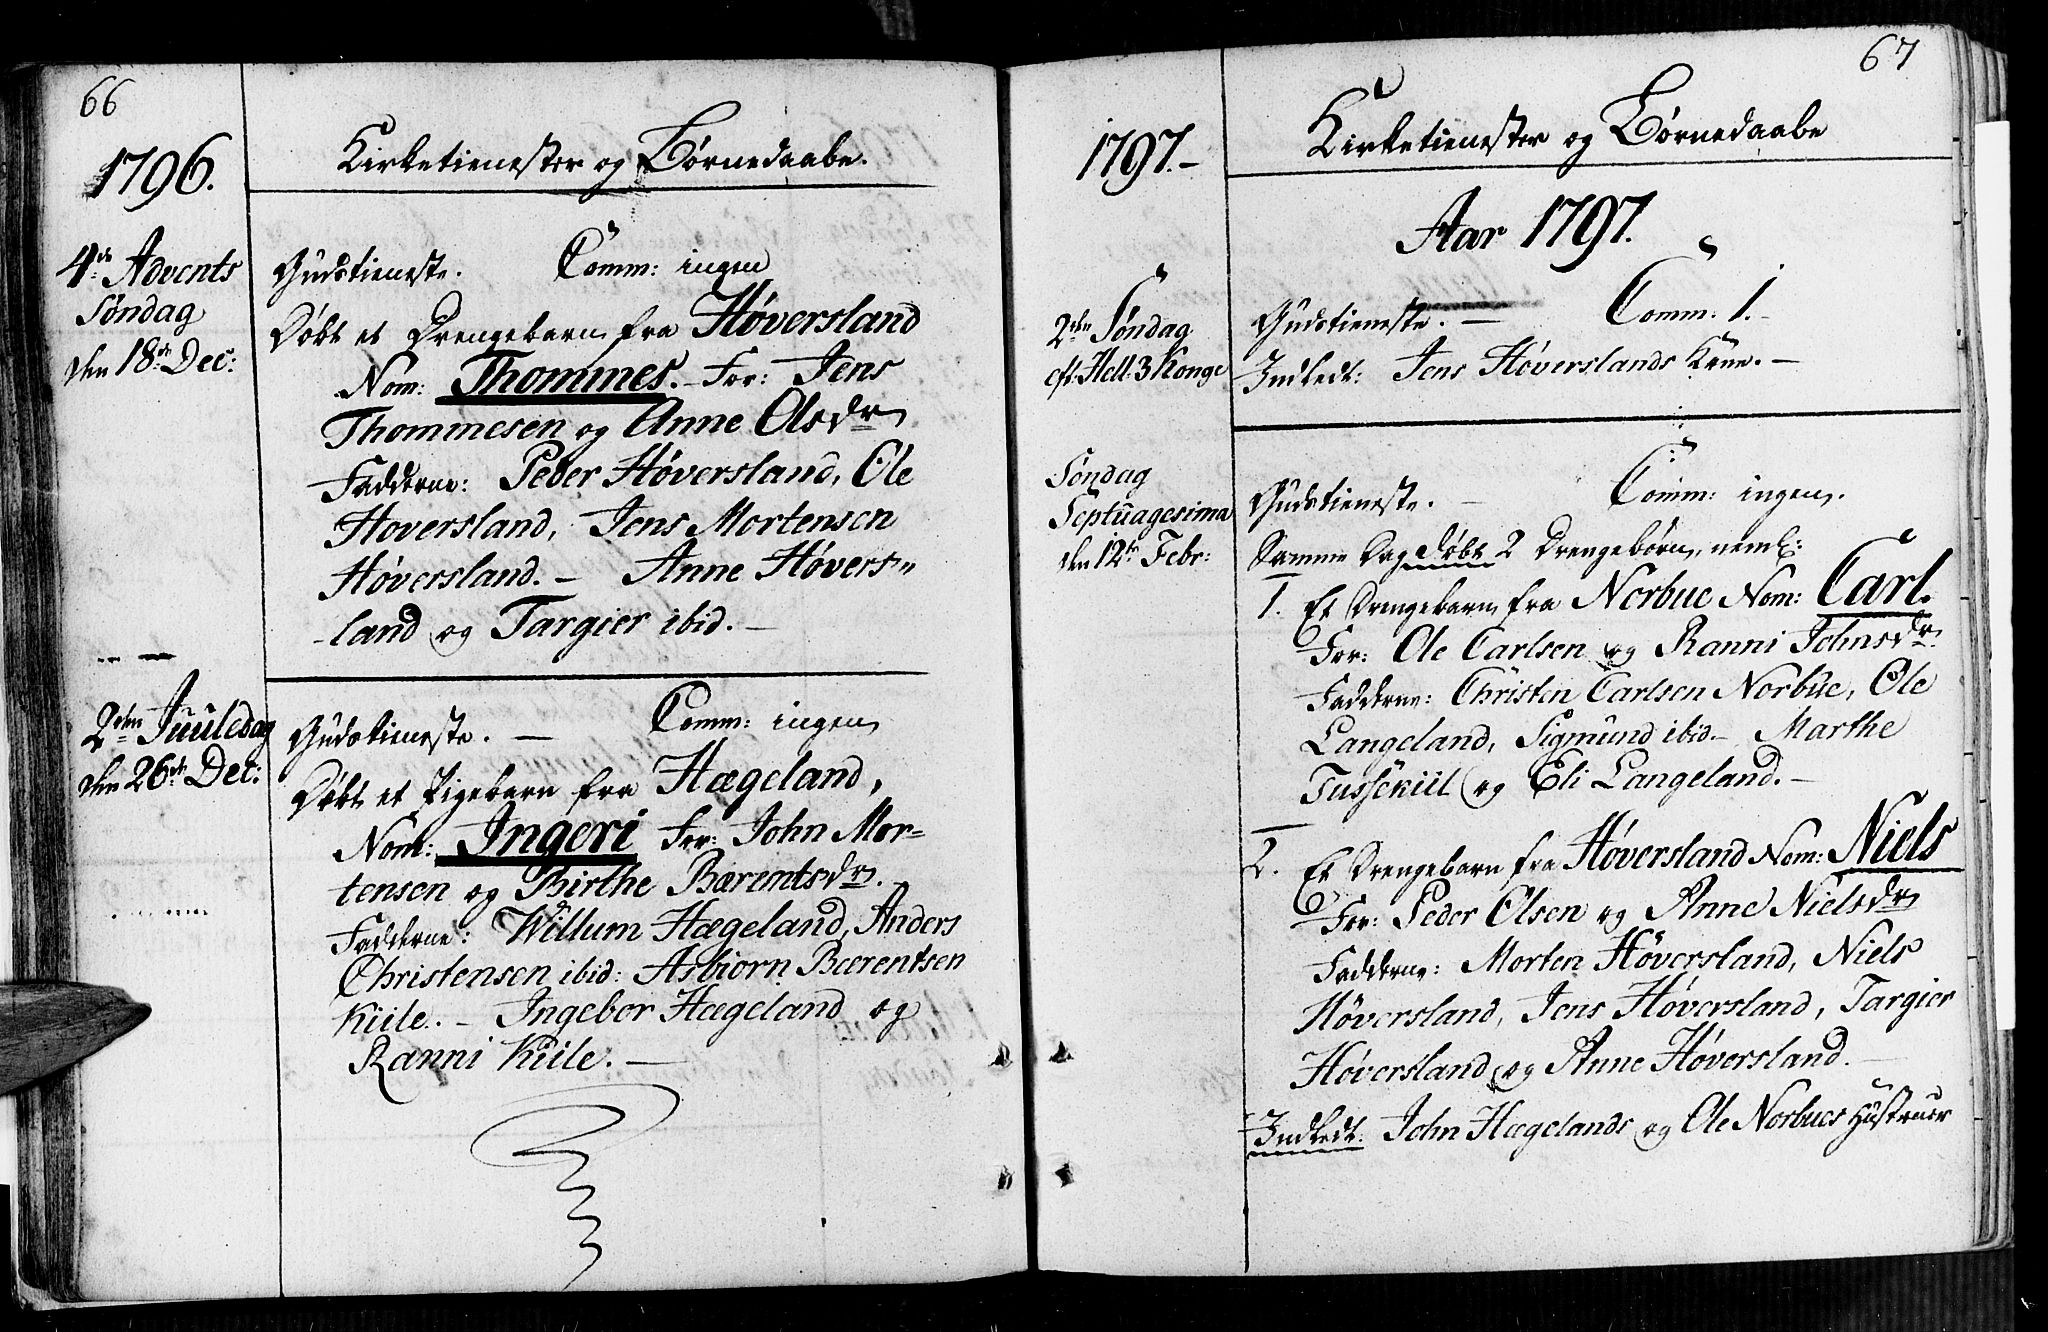 66
1796.
Kirketienester og Børnedaabe.
4de Advents
Søndag
den 18de Dec:
Gudstieneste. Comm: ingen
Døbt et Drengebarn fra Høversland
Nom: Thommes. For: Jens
Thommesen og Anne Olsdr
Fadderne: Peder Høversland, Ole
Høversland, Jens Mortensen
Høversland. – Anne Høvers=
-land og Targier ibid. –
2den Juuledag
den 26de Dec:
Gudstieneste. – Comm: ingen
Døbt et Pigebarn fra Hægeland,
Nom: Ingeri For: John Mor=
tensen og Birthe Bærentsdr.
Fadderne: Willum Hægeland, Anders
Christensen ibid: Asbiørn Bærentsen
Kiile. – Ingebor Hægeland og
Ranni Kiile. –
67
1797.–
Kirketienester og Børnedaabe
Aar 1797.
2den Søndag
eft: Hell: 3 Konge
Gudstieneste. – Comm: 1.–
Indledt: Jens Høverslands Kone. –
Søndag
Septuagesima
den 12te Febr:
Gudstieneste. – Comm: ingen.
Samme Dag døbt 2 Drengebørn, neml:
1. Et Drengebarn fra Norbue Nom: Carl.
For: Ole Carlsen og Ranni Johnsdr.
Fadderne: Christen Carlsen Norbue, Ole
Langeland, Sigmund ibid – Marthe
Tussekiil og Eli Langeland. –
2. Et Drengebarn fra Høversland Nom: Niels
For: Peder Olsen og Anne Nielsdr
Fadderne: Morten Høversland, Niels
Høversland, Jens Høversland, Targier
Høversland og Anne Høversland. –
Indledt: John Hægelands og Ole Norbues Hustruer